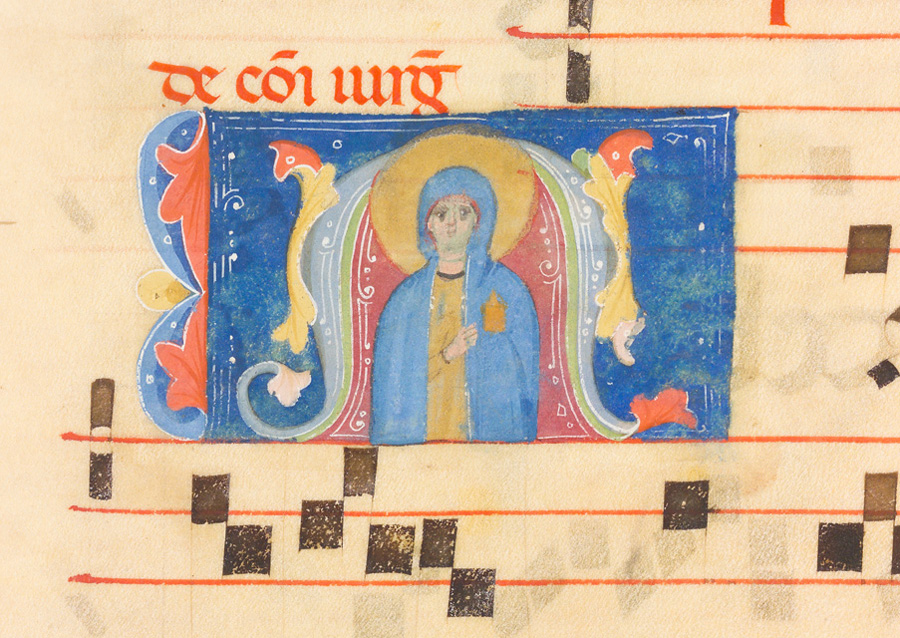 de cōi uirḡ